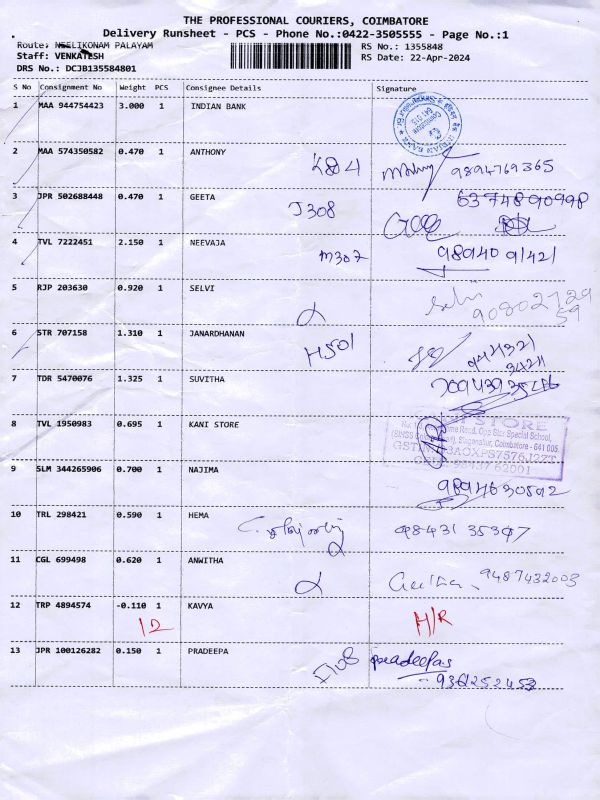 THE PROFESSIONAL COURIERS, COIMBATORE
Delivery Runsheet - PCS - Phone No.:0422-3505555 - Page No.:1
Route: NEELIKONAM PALAYAM RS No.: 1355848
Staff: VENKATESH RS Date: 22-Apr-2024
DRS No.: DCJB135584801
S No Consignment No Weight PCS Consignee Details Signature
1 MAA 944754423 3.000 1 INDIAN BANK
INDIAN BANK
2 MAA 574350582 0.470 1 ANTHONY
9894769365
3 JPR 502688448 0.470 1 GEETA
J308 6374890998
4 TVL 7222451 2.150 1 NEEVAJA
M307 9894091421
5 RJP 203630 0.920 1 SELVI
Selvi
9080272959
6 STR 707158 1.310 1 JANARDHANAN
H501
7 TDR 5470076 1.325 1 SUVITHA
8 TVL 1950983 0.695 1 KANI STORE
STORE
Road, Opp Star Special School,
Coimbatore - 641 005
9 SLM 344265906 0.700 1 NAJIMA
9894630592
10 TRL 298421 0.590 1 HEMA
9843135397
11 CGL 699498 0.620 1 ANWITHA
Geetha 9487432003
12 TRP 4894574 -0.110 1 KAVYA
ID H/R
13 JPR 100126282 0.150 1 PRADEEPA
pradeepas